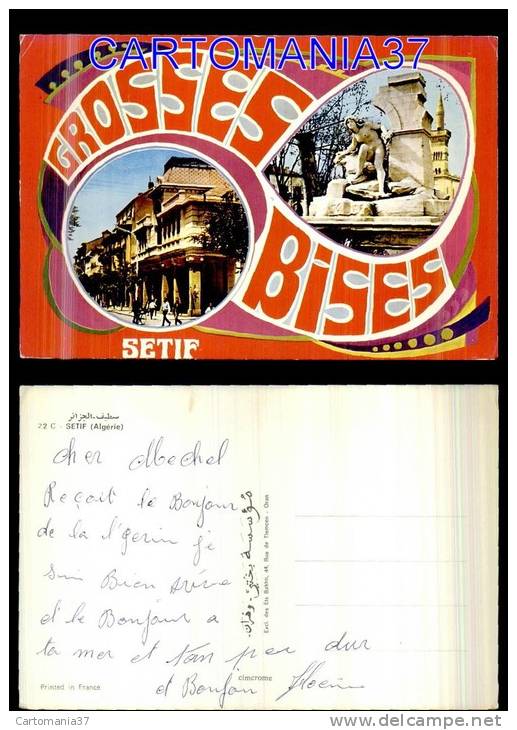 CARTOMANIA37
GROSSES
BISES
SETIF
سطيف - الجزائر
22 C - SETIF (Algérie)
cher Mechel
Reçoit le Bonjour
de la l'gerin je
suis Bien arive
et le Bonjour a
ta mer et ton per
et Bonjour
مؤسسة بختي - وهران
Excl. des Ets Bakhti, 44, Rue de Tlemcen - Oran
cimcrome
Printed in France
Cartomania37
www.delcampe.net